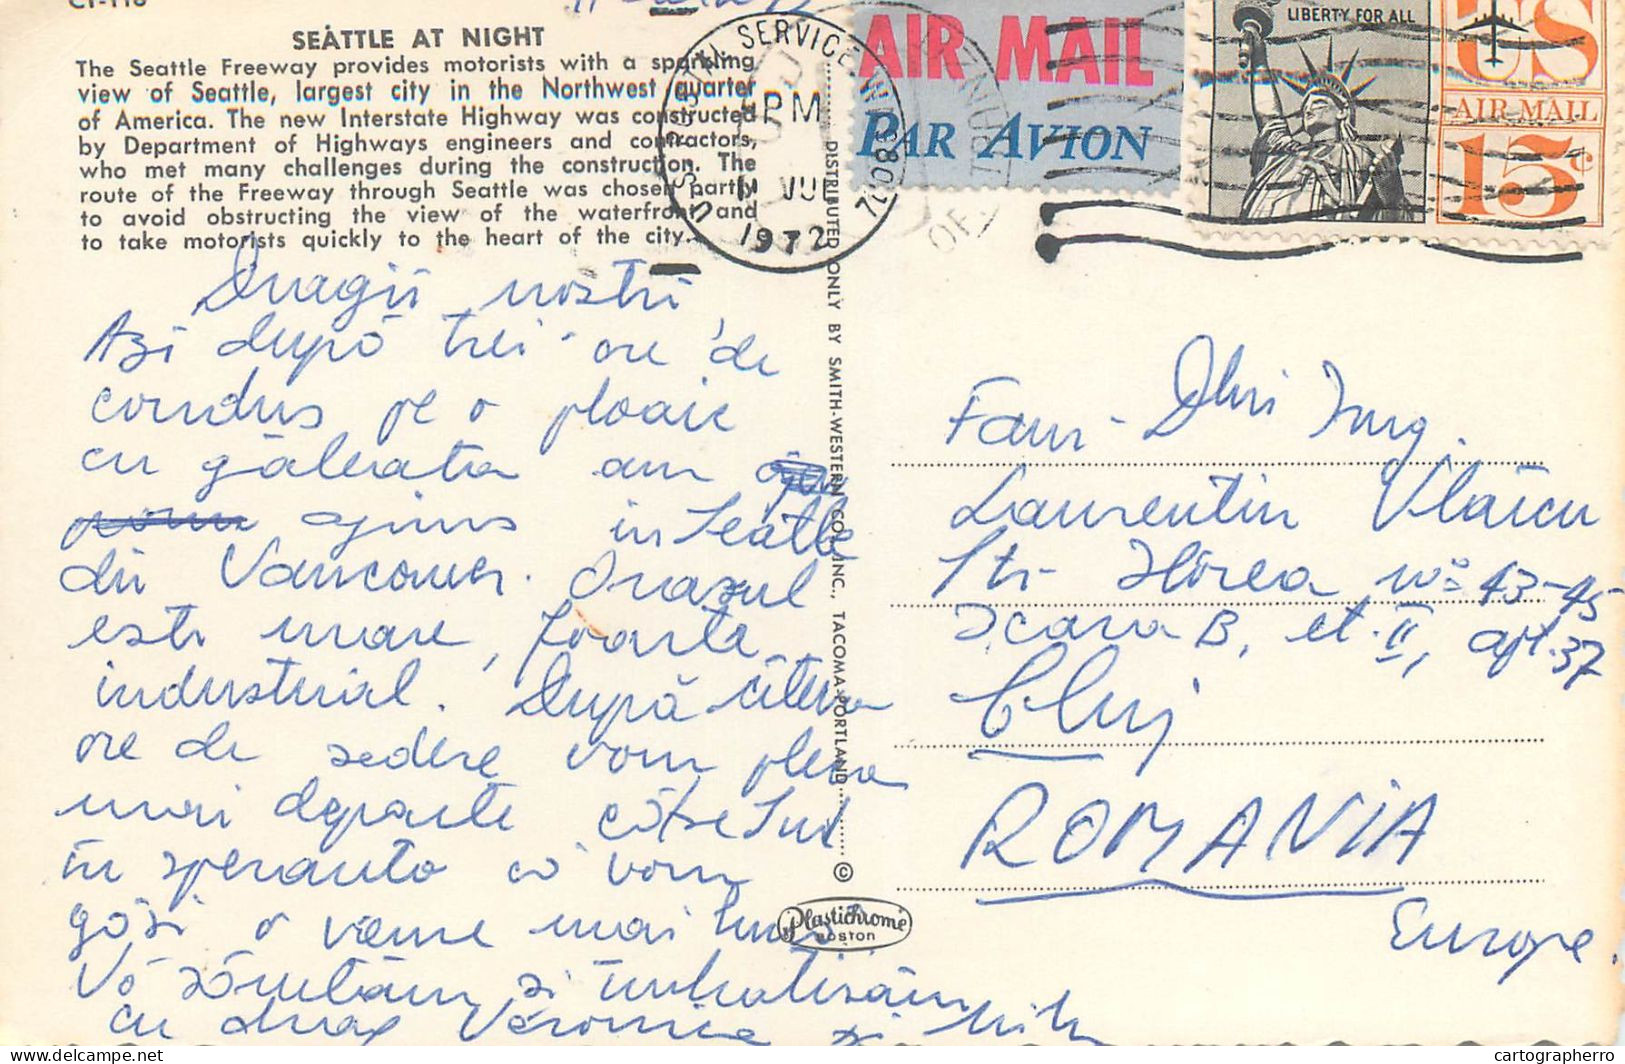 CT-118
SEATTLE AT NIGHT
The Seattle Freeway provides motorists with a sparkling
view of Seattle, largest city in the Northwest quarter
of America. The new Interstate Highway was constructed
by Department of Highways engineers and contractors,
who met many challenges during the construction. The
route of the Freeway through Seattle was chosen partly
to avoid obstructing the view of the waterfront and
to take motorists quickly to the heart of the city.
Dragii noștri,
Azi după trei ore de
condus pe o ploaie
cu găleata am
ajuns in Seattle
din Vancouver. Orașul
este mare, foarte
industrial. După câteva
ore de ședere vom pleca
mai departe către Sud
în speranța că vom
găsi o vreme mai bună
Vă sărutăm și îmbrățișăm
cu drag Veronica și
DISTRIBUTED ONLY BY SMITH-WESTERN CO. INC., TACOMA-PORTLAND
©
Plastichrome
BOSTON
U.S. POSTAL SERVICE WA 980
PM
11 JUL
1972
AIR MAIL
PAR AVION
LIBERTY FOR ALL
US
AIR MAIL
15¢
Fam. Dlui Ing.
Laurentiu Vlaicu
Str. Horea no 43-45
Scara B, et. II, apt. 37
Cluj
ROMANIA
Europe.
cartographerro